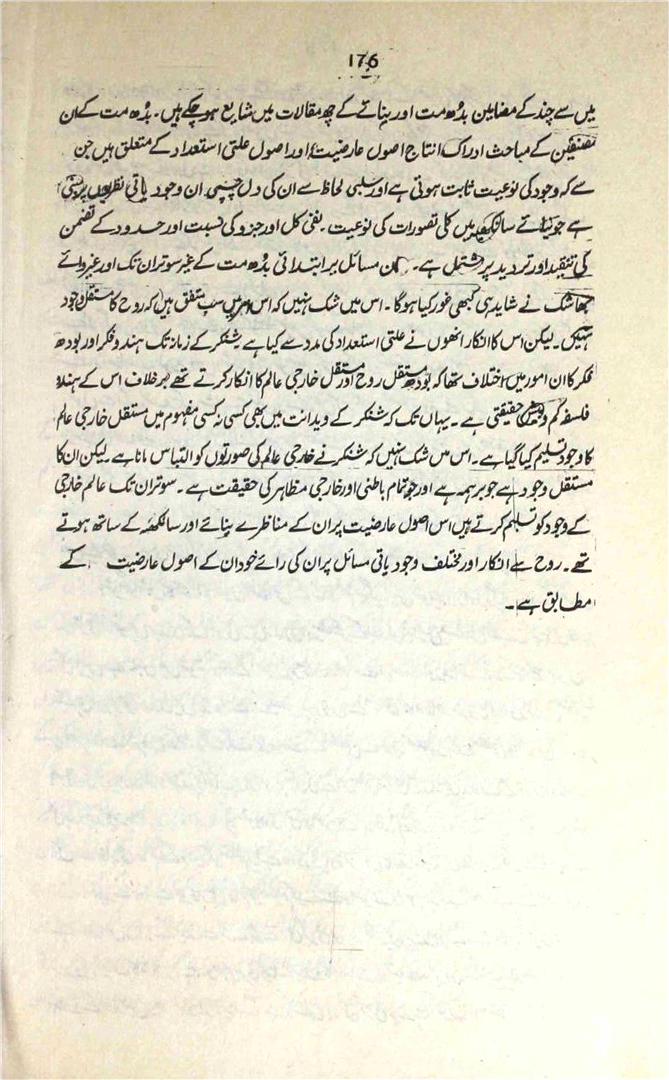 176
میں سے چند کے مضامین بدُھ مت اور نیائے کے چھ مقالات میں شایع ہو چکے ہیں۔ بدُھ مت کے ان
مصنفین کے مباحث ادراک انتاج اصول عارضیت اور اصول علتی استعداد کے متعلق ہیں جن
سے کہ وجود کی نوعیت ثابت ہوتی ہے اور سلبی لحاظ سے ان کی دل چسپی ان وجود یاتی نظریوں پر مبنی
ہے جو نیائے سانکھیہ میں کلی تصورات کی نوعیت۔ نفی کل اور جزو کی نسبت اور حدود کے تضمن
کی تنقید اور تردید پر مشتمل ہے۔ ان مسائل پر ابتدائی بدُھ مت کے غیر سوتران تک اور غیر وائے
بھاشک نے شاید ہی کبھی غور کیا ہوگا۔ اس میں شک نہیں کہ اس امر میں سب متفق ہیں کہ روح کا مستقل وجود
نہیں۔ لیکن اس کا انکار انھوں نے علتی استعداد کی مدد سے کیا ہے شنکر کے زمانہ تک ہندو فکر اور بودھ
فکر کا ان امور میں اختلاف تھا کہ بودھ مستقل روح اور مستقل خارجی عالم کا انکار کرتے تھے برخلاف اس کے ہندو
فلسفہ کم و بیش حقیقتی ہے۔ یہاں تک کہ شنکر کے ویدانت میں بھی کسی نہ کسی مفہوم میں مستقل خارجی عالم
کا وجود تسلیم کیا گیا ہے۔ اس میں شک نہیں کہ شنکر نے خارجی عالم کی صورتوں کو التباس مانا ہے۔ لیکن ان کا
مستقل وجود ہے جو برہمہ ہے اور جو تمام باطنی اور خارجی مظاہر کی حقیقت ہے۔ سوتران تک عالم خارجی
کے وجود کو تسلیم کرتے ہیں اس اصول عارضیت پر ان کے مناظرے نیائے اور سانکھیہ کے ساتھ ہوتے
تھے۔ روح سے انکار اور مختلف وجود یاتی مسائل پر ان کی رائے خود ان کے اصول عارضیت کے
مطابق ہے۔